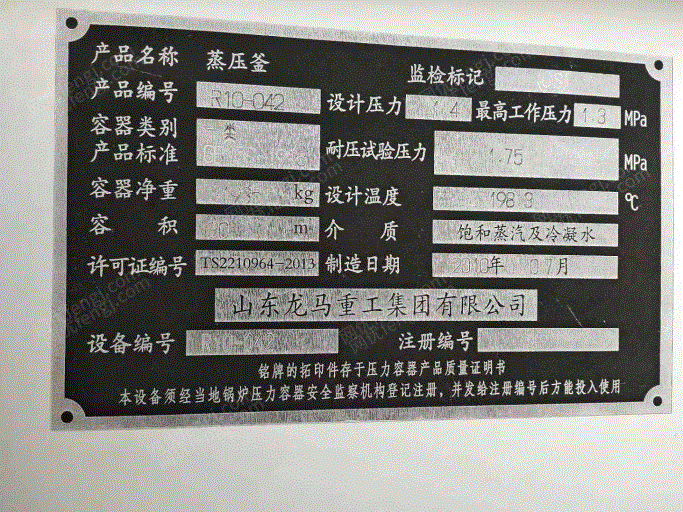 产品名称 蒸压釜 监检标记
产品编号 R10-042 设计压力 1.4 最高工作压力 1.3 MPa
容器类别 一类
产品标准 耐压试验压力 1.75 MPa
容器净重 kg 设计温度 198.3 ℃
容积 m 介质 饱和蒸汽及冷凝水
许可证编号 TS2210964-2013 制造日期 2010年 07月
山东龙马重工集团有限公司
设备编号 注册编号
铭牌的拓印件存于压力容器产品质量证明书
本设备须经当地锅炉压力容器安全监察机构登记注册，并发给注册编号后方能投入使用